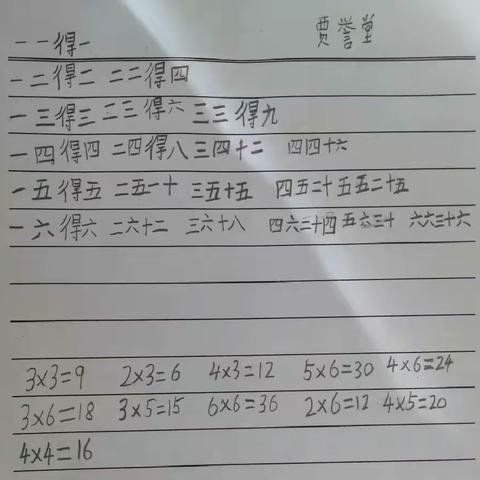 一一得一 贾誉堂
一二得二 二二得四
一三得三 二三得六 三三得九
一四得四 二四得八 三四十二 四四十六
一五得五 二五一十 三五十五 四五二十 五五二十五
一六得六 二六十二 三六十八 四六二十四 五六三十 六六三十六
3×3=9 2×3=6 4×3=12 5×6=30 4×6=24
3×6=18 3×5=15 6×6=36 2×6=12 4×5=20
4×4=16